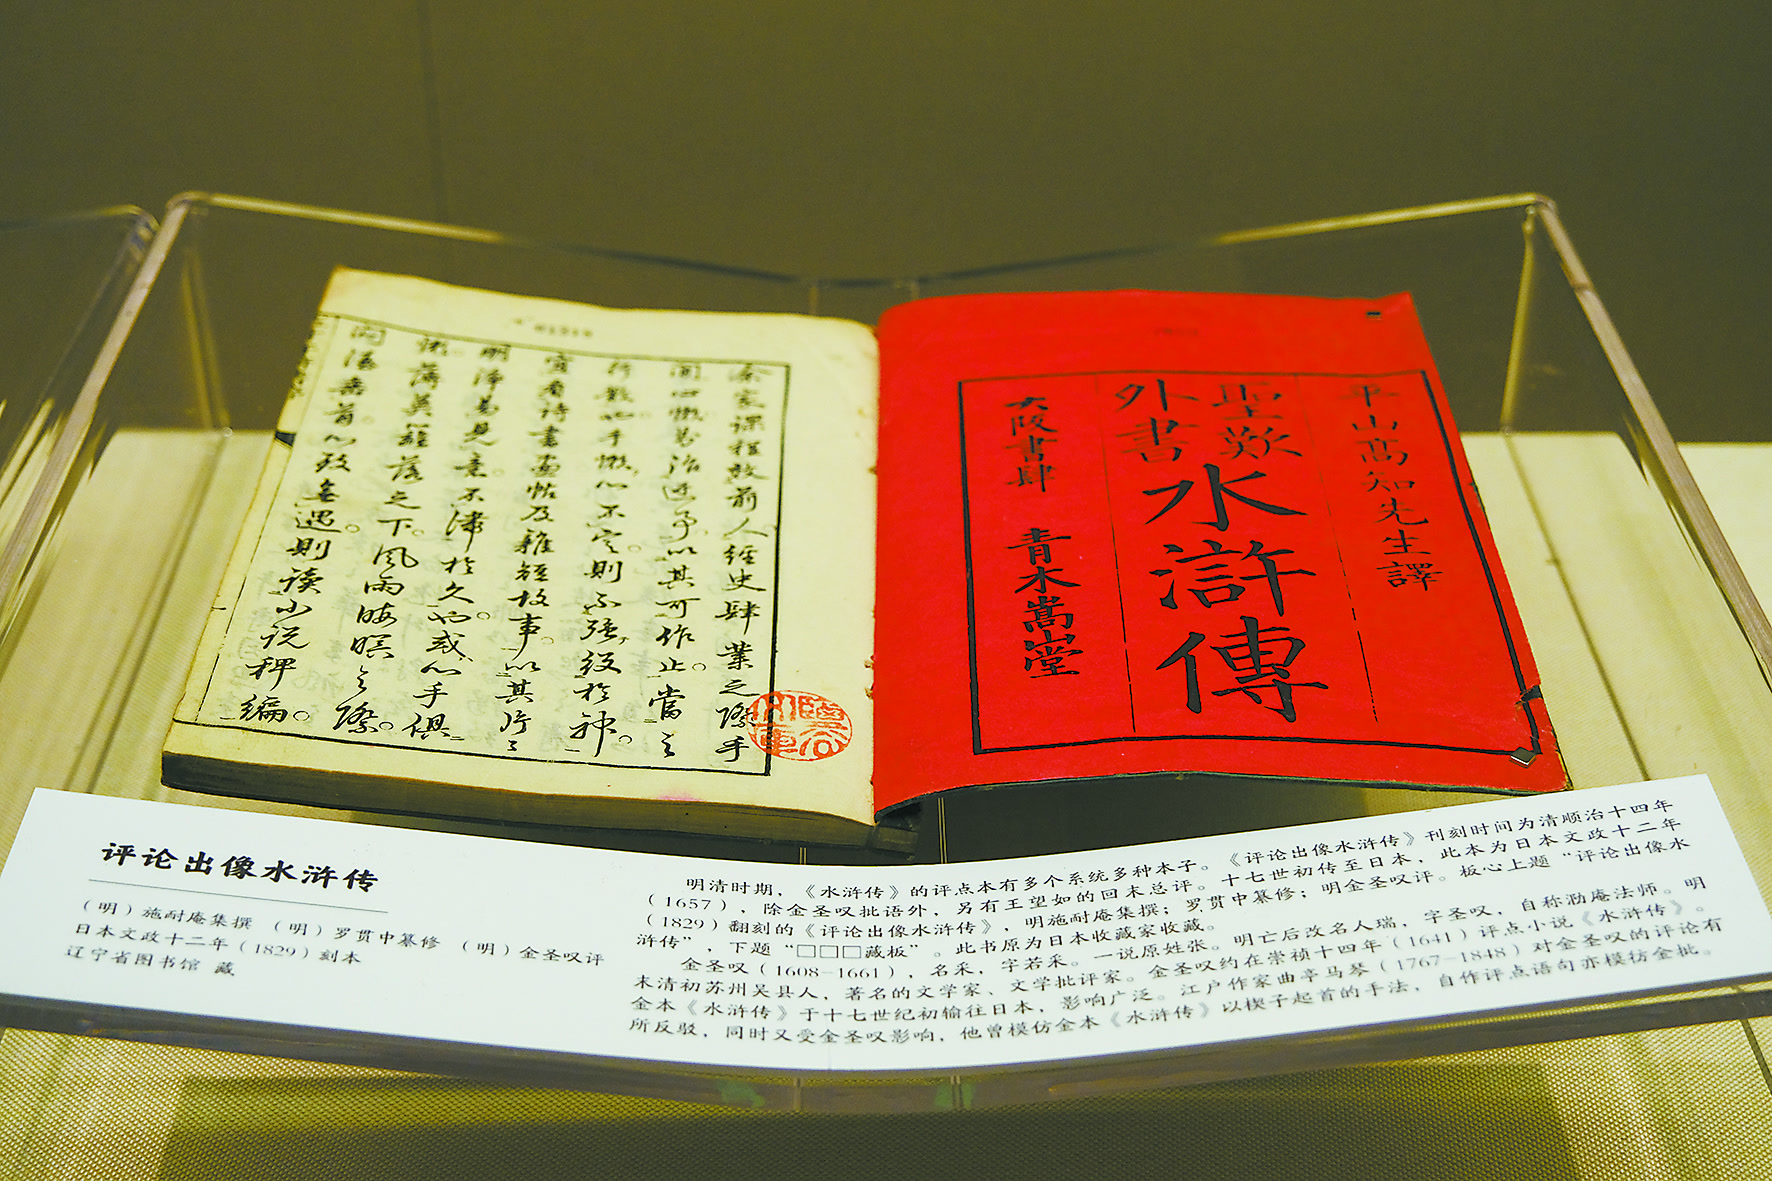 平山髙知先生譯
聖歎
外書
水滸傳
大阪書肆 青木嵩堂
家課程故前人經史肆業之際手
其可作止。當之
心不定則不強。
看詩書畫帖及雜短故事。以其片々
明淨易見意不津於久也。或心手俱
籬落之下。風雨晦暝之際。
則讀小説稗編。
评论出像水浒传
（明）施耐庵集撰 （明）罗贯中纂修 （明）金圣叹评
日本文政十二年（1829）刻本
辽宁省图书馆 藏
明清时期，《水浒传》的评点本有多个系统多种本子。《评论出像水浒传》刊刻时间为清顺治十四年
（1657），除金圣叹批语外，另有王望如的回末总评。十七世初传至日本，此本为日本文政十二年
（1829）翻刻的《评论出像水浒传》，明施耐庵集撰；罗贯中纂修；明金圣叹评。板心上题“评论出像水
浒传”，下题“□□□藏板”。此书原为日本收藏家收藏。
金圣叹（1608–1661），名采，字若采。一说原姓张。明亡后改名人瑞，字圣叹，自称泐庵法师。明
末清初苏州吴县人，著名的文学家、文学批评家。金圣叹约在崇祯十四年（1641）评点小说《水浒传》。
金本《水浒传》于十七世纪初输往日本，影响广泛。江户作家曲亭马琴（1767–1848）对金圣叹的评论有
所反驳，同时又受金圣叹影响，他曾模仿金本《水浒传》以楔子起首的手法，自作评点语句亦模仿金批。